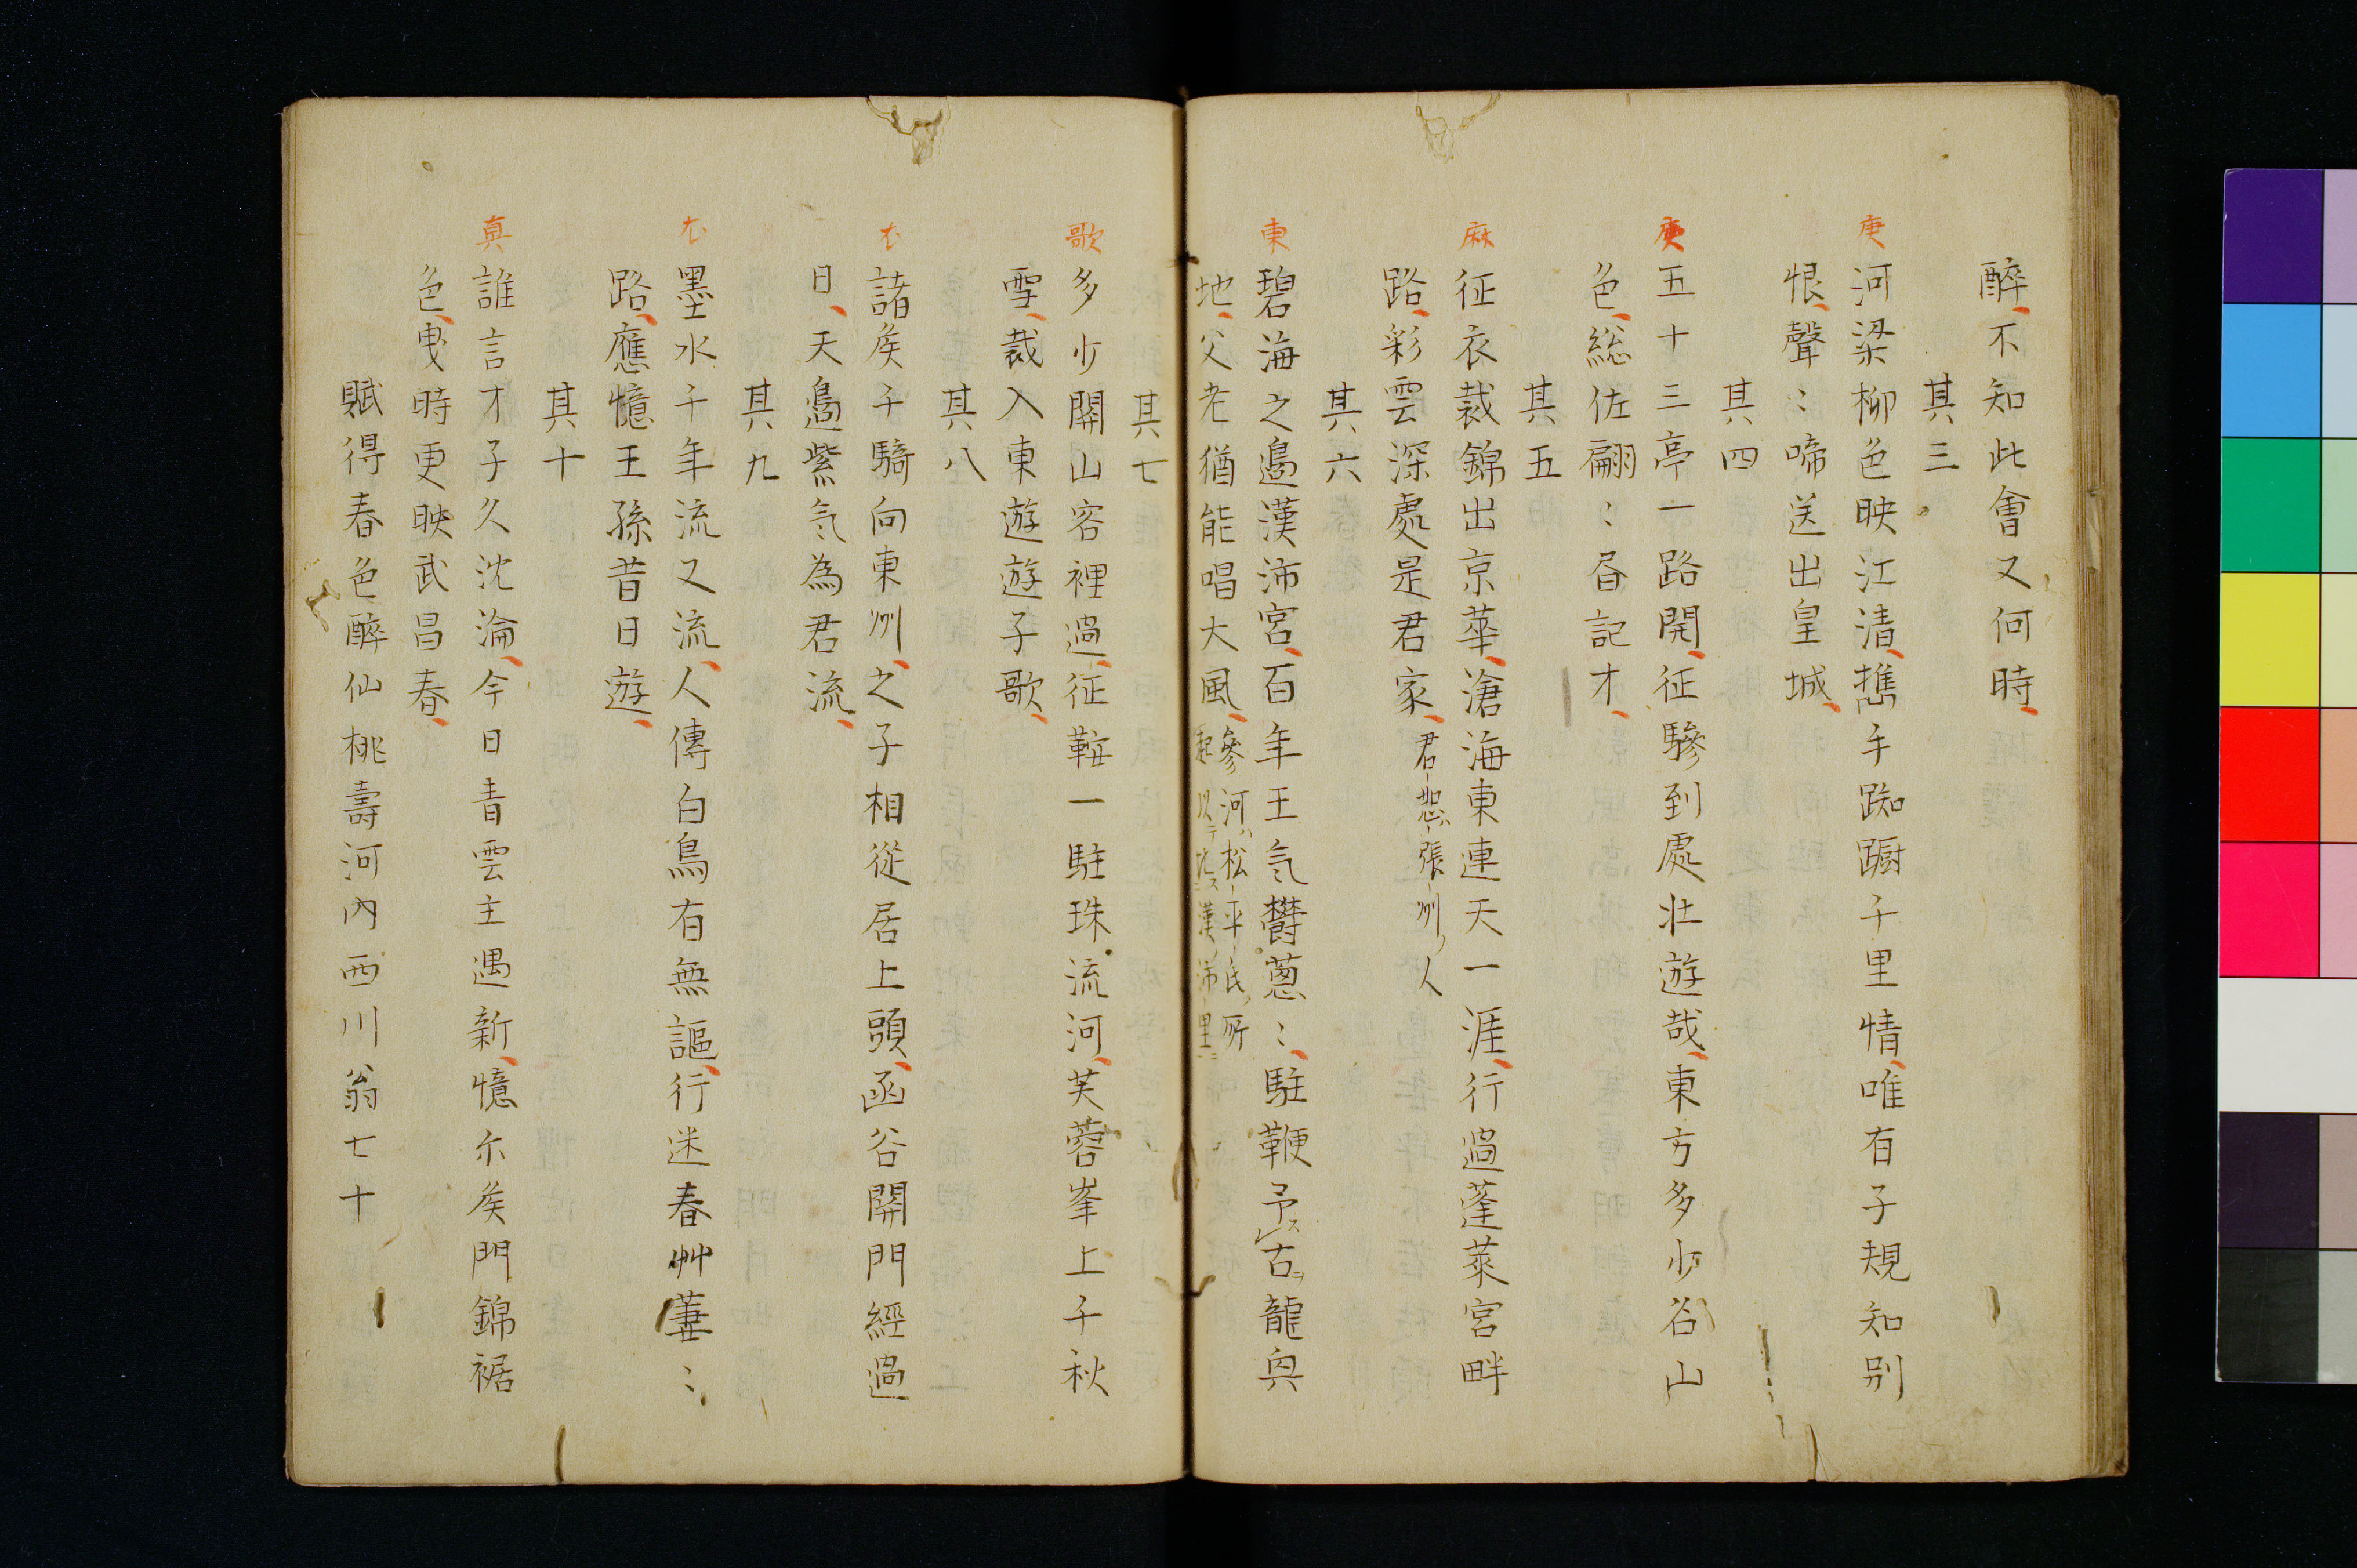 醉不知此會又何時
其三
庚
河梁柳色映江清携手踟蹰千里情唯有子規知別
恨聲〻啼送出皇城
其四
五十三亭一路開征驂到處壮遊哉東方多少谷山
色総佐翩〻昏記才
其五
麻
征衣裁錦出京華滄海東連天一涯行過蓬萊宮畔
路彩雲深處是君家君恕ハ張州ノ人
其六
東
碧海之邉漢沛宮百年王气欝葱〻駐鞭予古龍興
地父老猶能唱大風參河ハ松平氏ノ所
起以テ比ス漢ノ沛里ニ
其七
歌
多少關山客裡過征鞍一駐珠流河芙蓉峯上千秋
雪裁入東遊遊子歌
其八
尤
諸矦千騎向東州之子相從居上頭函谷關門經過
日天邉紫气為君流
其九
尤
墨水千年流又流人傳白鳥有無謳行迷春艸萋〻
路應憶王孫昔日遊
其十
真
誰言才子久沈淪今日青雲主遇新憶尓矦門錦裾
色曳時更映武昌春
賦得春色醉仙桃壽河内西川翁七十